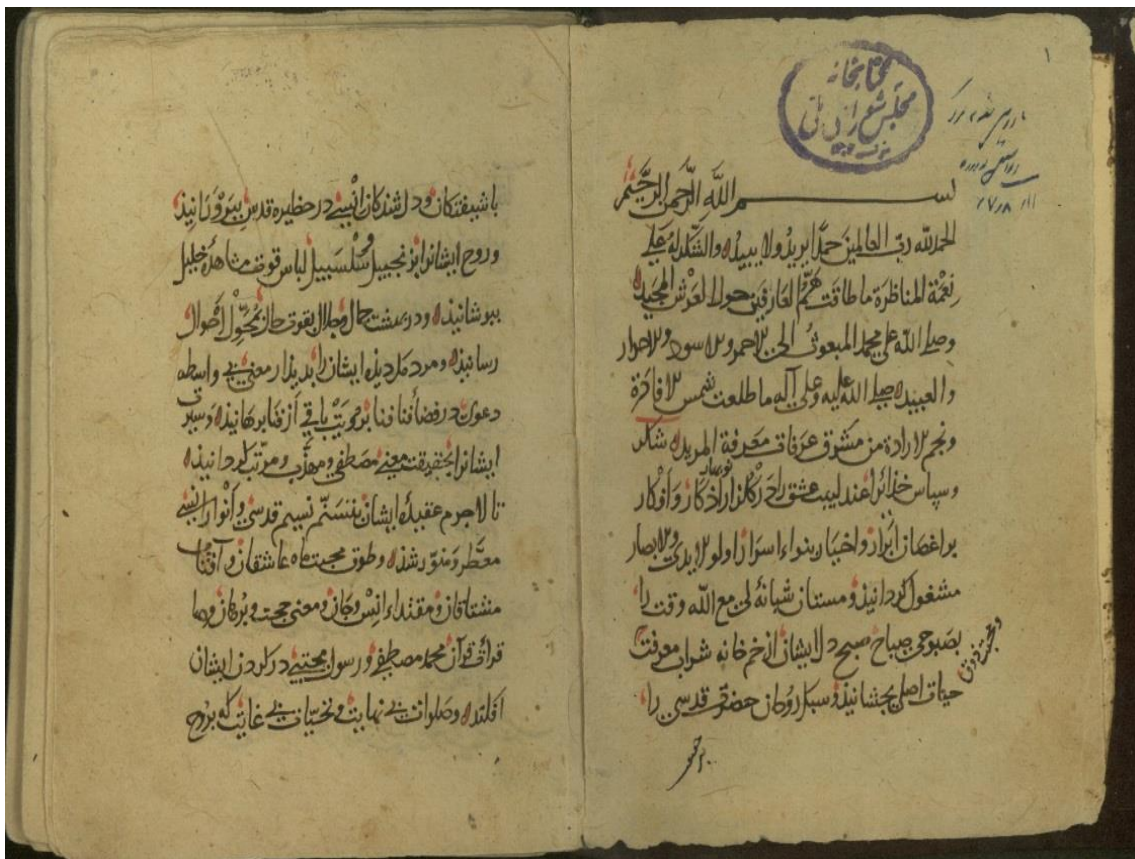 ۱
کتابخانه
مجلس شورای ملی
بسم الله الرحمن الرحیم
الحمدلله ربّ العالمین حمدًا یرید ولا یبید والشکر له علی
نعمة المناظرة ما طاقت همم العارفین حول العرش المجید
وصلی الله علی محمد المبعوث الی الاحمر والاسود والاحرار
والعبید صلی الله علیه وعلی آله ما طلعت شمس الافادة
ونجم الارادة من مشرق عرفات معرفة المرید شکر
وسپاس خدائرا عندلیب عشق را در گلزار اذکار و افکار
بر اغصان ابرار و اخیار بنواء اسرار اولو الایدی والابصار
مشغول کردانیذ و مستان شبانهٔ لی مع الله وقت را
بصبوحی صباح صبح دل ایشان از خم خانه شراب معرفت
حیات اصلی بچشانیذ و سبک روحان حضرت قدسی را
با شیفتکان و دل شدکان انسی در حظیره قدس بپرورانیذ
وروح ایشانرا از زنجبیل وسلسبیل لباس قوت مشاهدهٔ خلیل
بپوشانیذ ودر بهشت جمال وجلال بقوت حال بمحوّل احوال
رسانیذ ومردمک دیذه ایشان را بدیذار معنی بی واسطه
دعوی در فضا فنا فنا بر محویت باقی از فنا برهانیذ وسیر
ایشانرا بحقیقت معنی مصطفی ومهذّب ومرتّب کردانیذ
تا لاجرم عقیدهٔ ایشان بتنسّم نسیم قدسی وانوار انسی
معطّر ومنوّر شذ وطوق محبت ماه عاشقان وآفتاب
مشتاقان ومقتداء انس وجان ومعنی حجت وبرهان
قرائ قرآن محمد مصطفی ورسول مجتبی در کردن ایشان
افکند وصلوات بی نهایت وتحیّات بی غایت که بروح